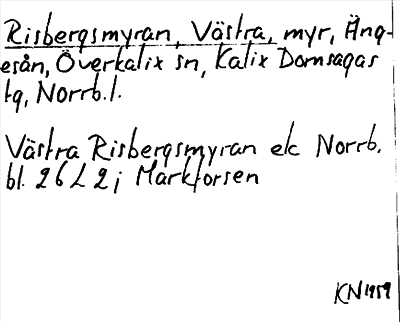 Risbergsmyran, Västra, myr, Äng-
esån, Överkalix sn, Kalix Domsagas
tg, Norrb.l.
Västra Risbergsmyran ek Norrb.
bl. 26L2j Markforsen
KN 1959